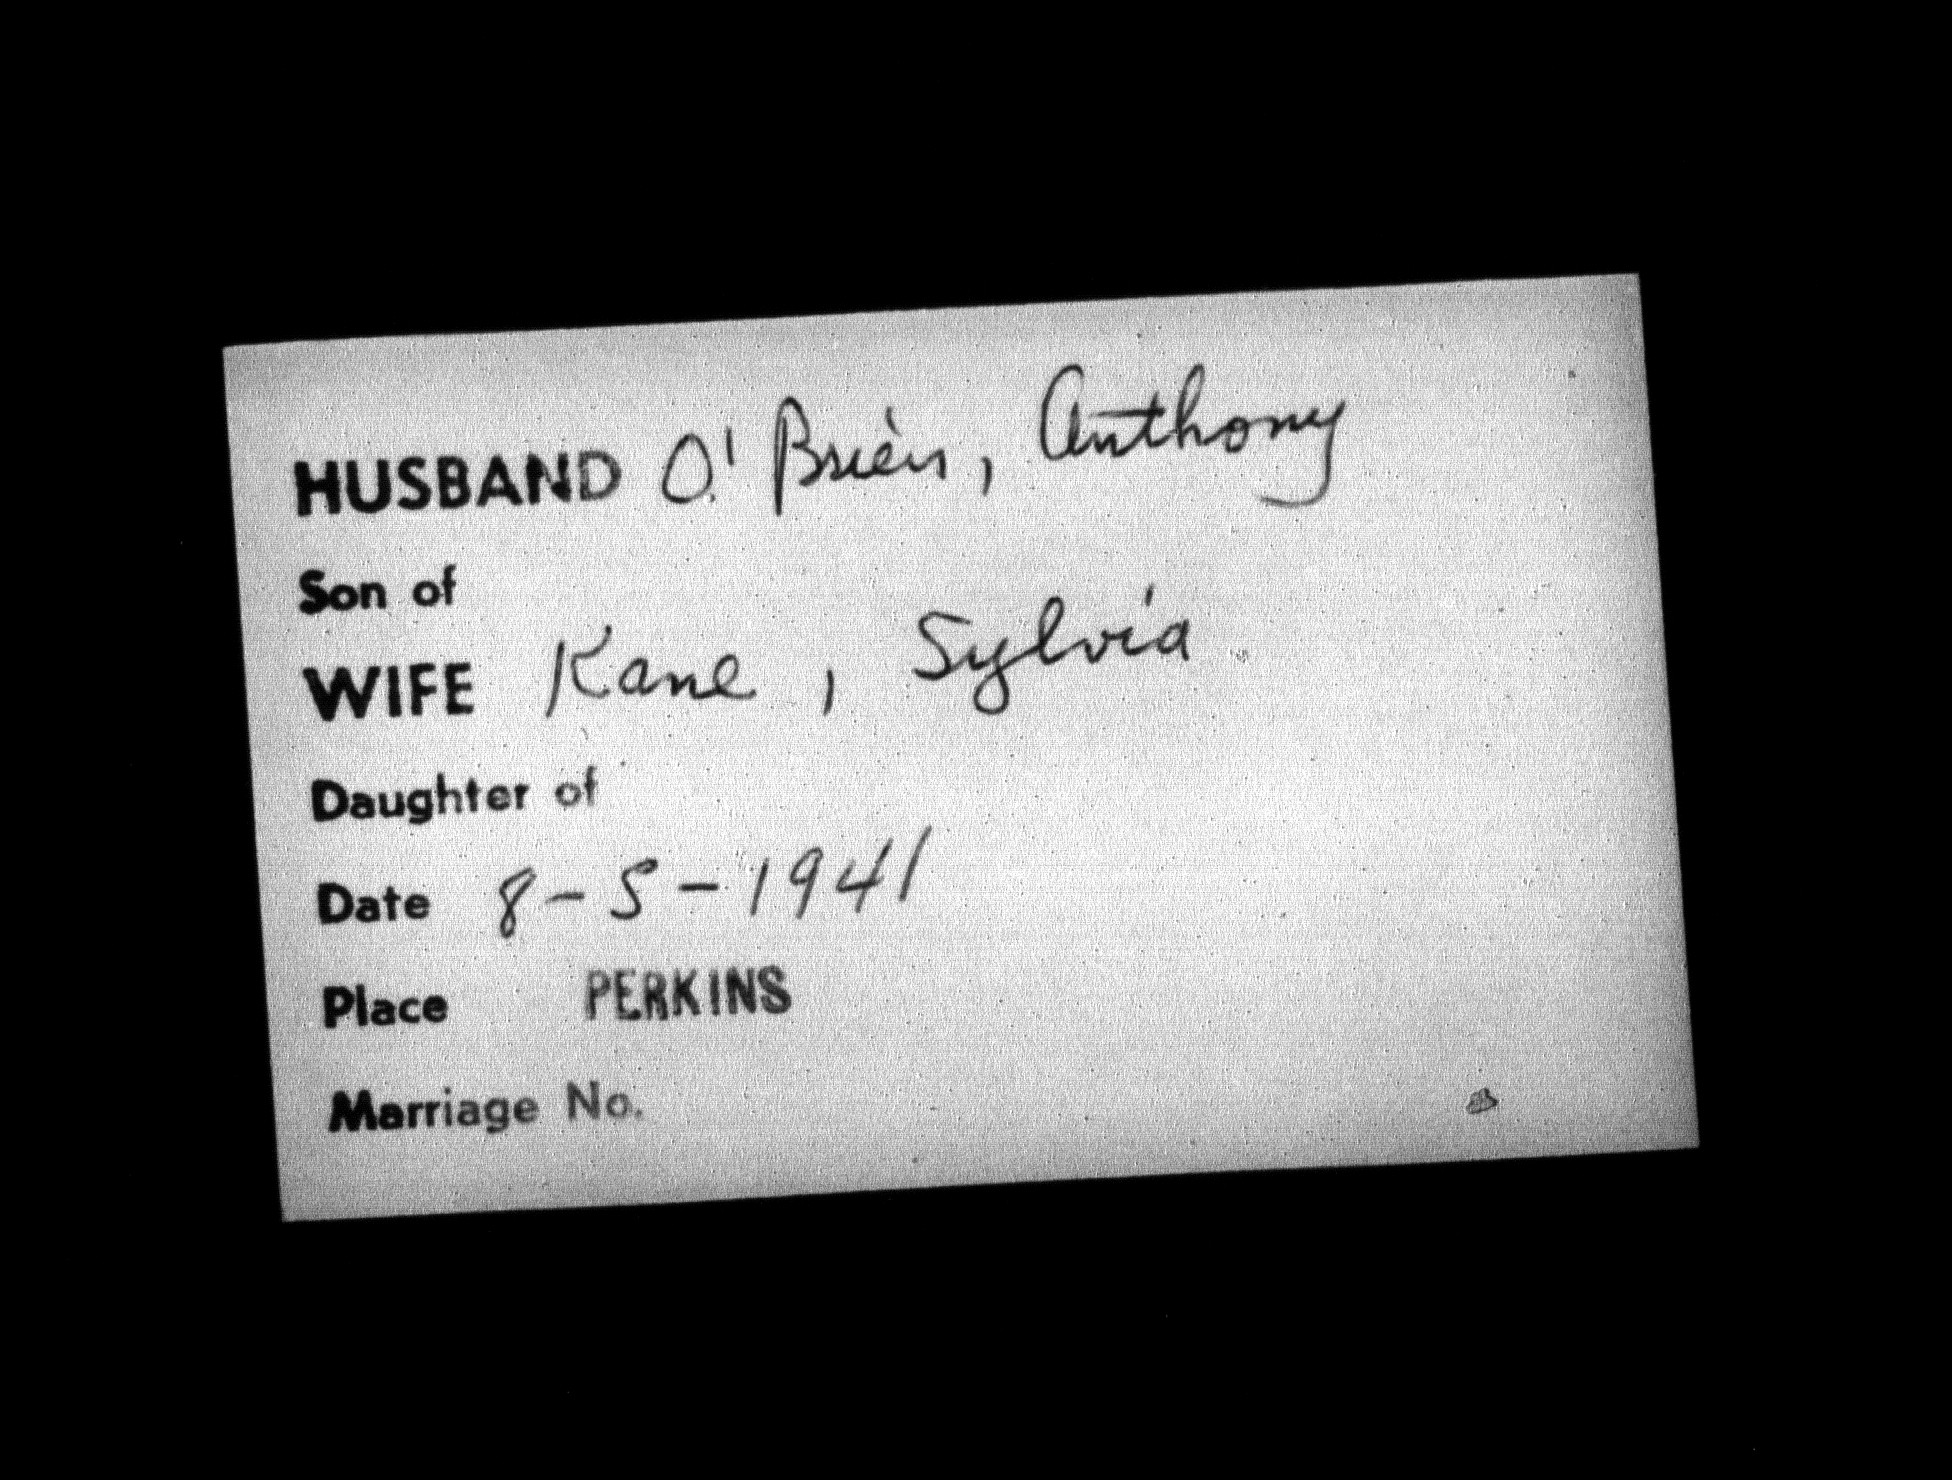 HUSBAND O'Brien, Anthony
Son of
WIFE Kane, Sylvia
Daughter of
Date 8-5-1941
Place PERKINS
Marriage No.